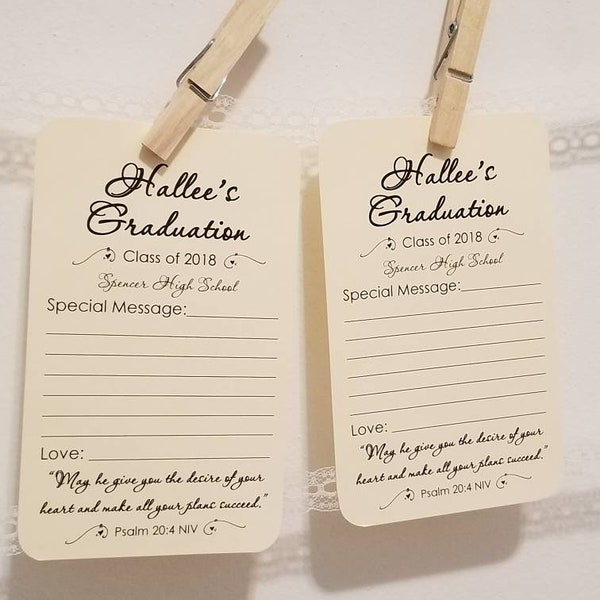 Hallee's
Graduation
Class of 2018
Spencer High School
Special Message:
Love:
"May he give you the desire of your
heart and make all your plans succeed."
Psalm 20:4 NIV
Hallee's
Graduation
Class of 2018
Spencer High School
Special Message:
Love:
"May he give you the desire of your
heart and make all your plans succeed."
Psalm 20:4 NIV